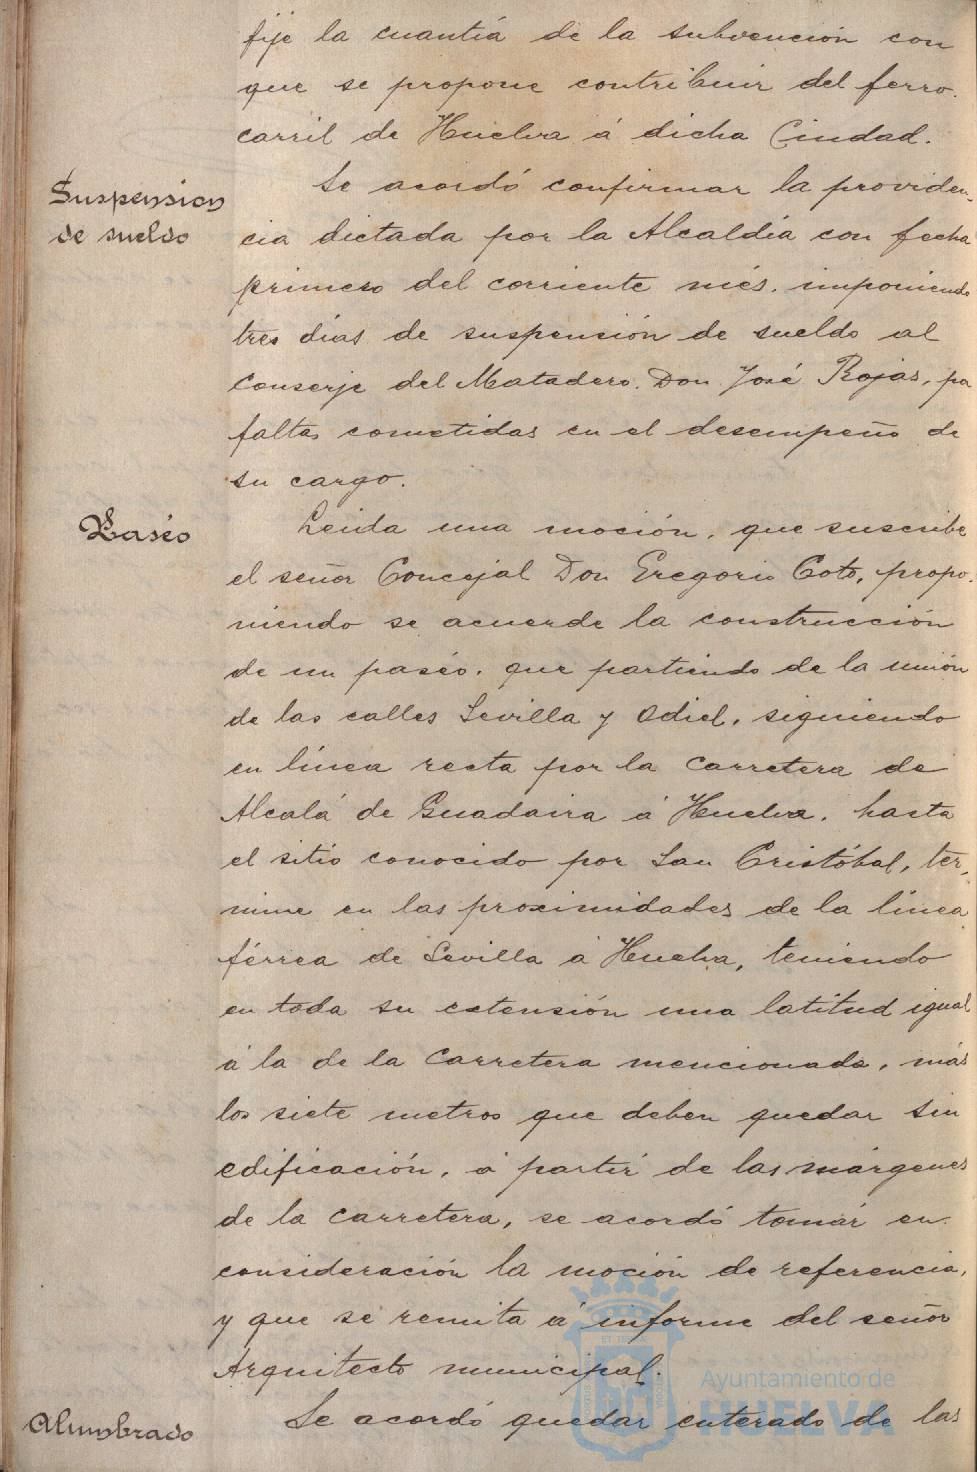 fije la cuantía de la subvención con
que se propone contribuir del ferro-
carril de Huelva á dicha Ciudad.
Suspension
de sueldo
Se acordó confirmar la providen-
cia dictada por la Alcaldía con fecha
primero del corriente més. imponiendo
tres días de suspensión de sueldo al
Conserje del Matadero. Don José Rojas, por
faltas cometidas en el desempeño de
su cargo.
Paséo
Leida una moción, que suscribe
el señor Concejal Don Gregorio Coto, propo-
niendo se acuerde la construcción
de un paséo, que partiendo de la unión
de las calles Sevilla y Odiel, siguiendo
en línea recta por la Carretera de
Alcalá de Guadaira á Huelva, hasta
el sitio conocido por San Cristóbal, ter-
mine en las proximidades de la línea
férrea de Sevilla á Huelva, teniendo
en toda su extensión una latitud igual
á la de la Carretera mencionada, más
los siete metros que deben quedar sin
edificación, á partir de las márgenes
de la Carretera, se acordó tomár en
consideración la moción de referencia,
y que se remita á informe del señor
Arquitecto municipal.
Alumbrado
Se acordó quedar enterado de las
Ayuntamiento de
HUELVA